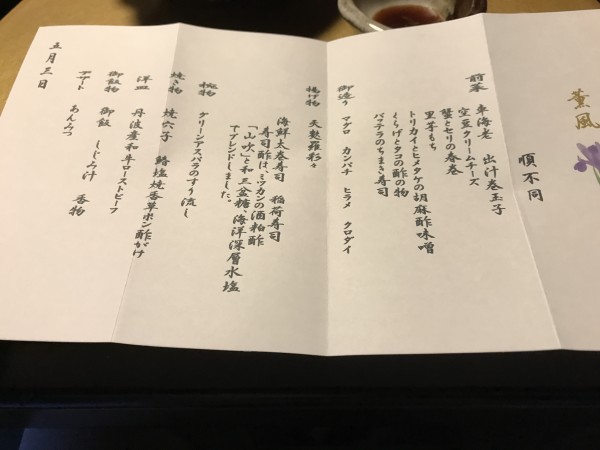 薫風
順不同
前菜 車海老 出汁巻玉子
空豆クリームチーズ
蟹とセリの春巻
里芋もち
トリカイとヒメタケの胡麻酢味噌
くらげとタコの酢の物
バッテラのちまき寿司
御造り マグロ カンパチ ヒラメ クロダイ
揚げ物 天麩羅彩々
海鮮太巻寿司 稲荷寿司
寿司酢は、ミツカンの酒粕酢
「山吹」と和三盆糖、海洋深層水塩
でブレンドしました。
椀物 グリーンアスパラのすり流し
焼き物 焼穴子 鰆塩焼香草ポン酢がけ
洋皿 丹波産和牛ローストビーフ
御飯物 御飯 しじみ汁 香物
デザート あんみつ
五月三日